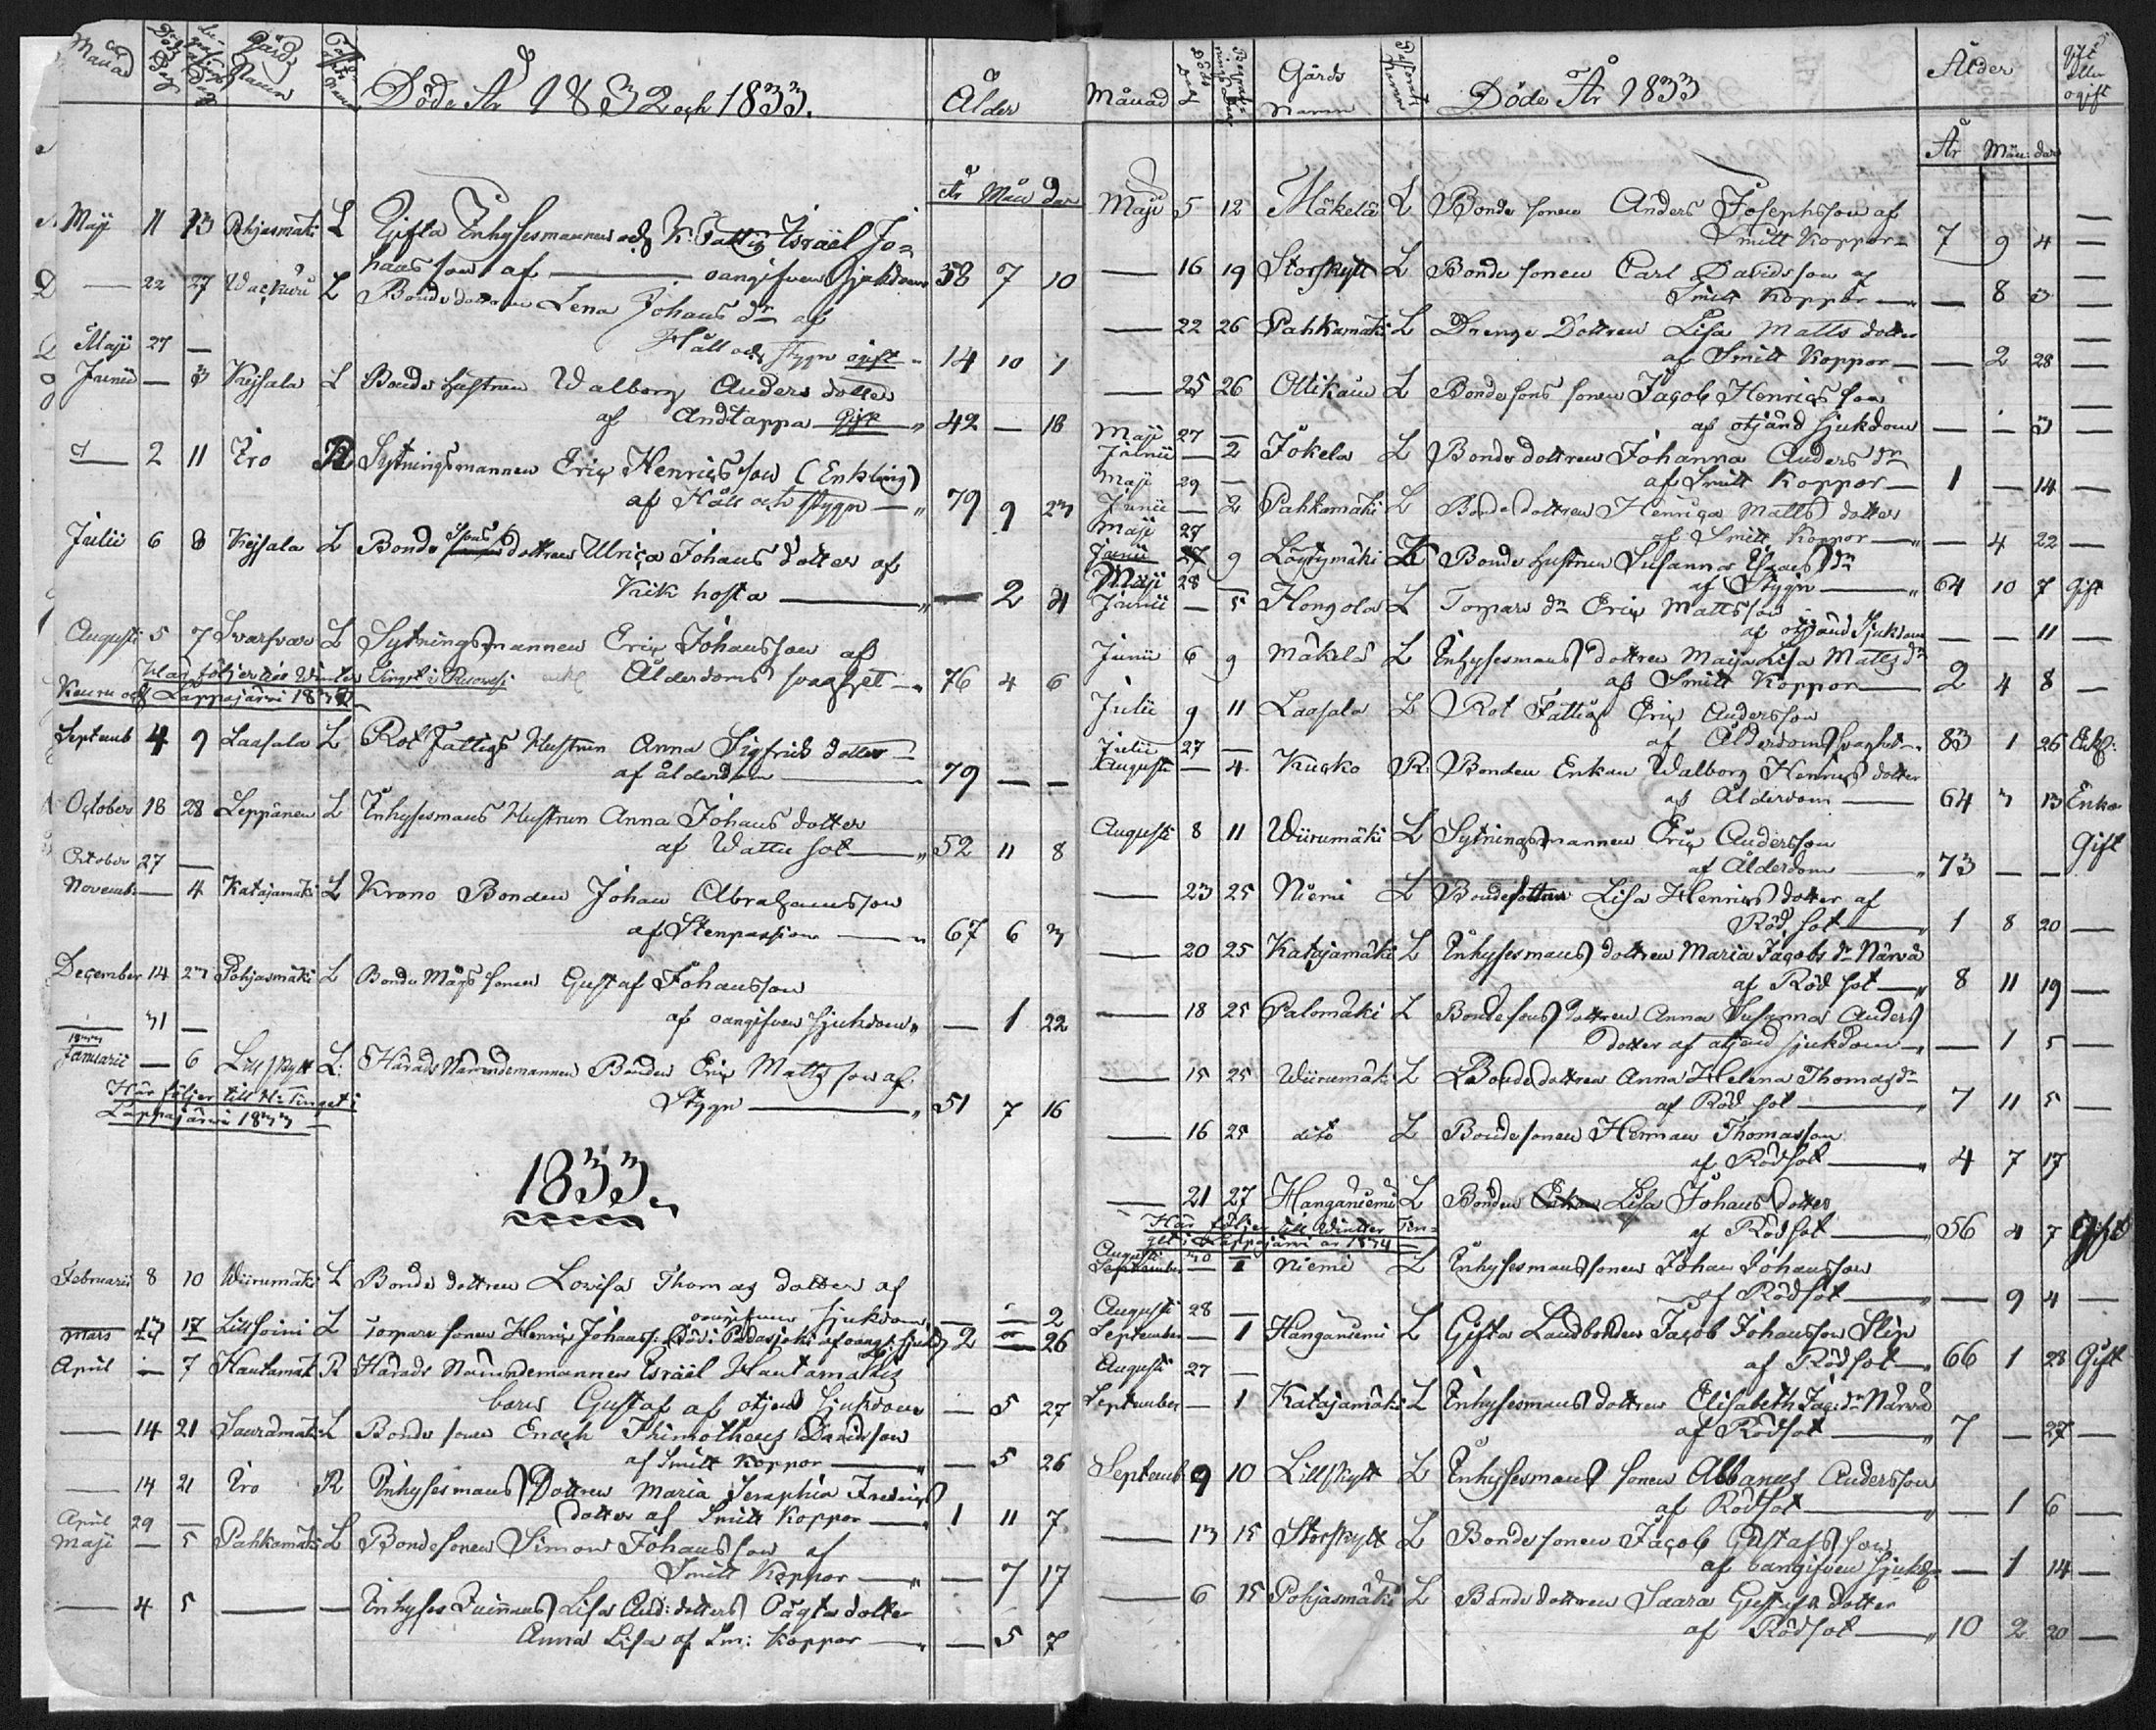 Månad Döds Dag Begrafnings Dag Gårds Namn
Döde År 1832 och 1833.
Ålder
År Mån dar
Maji 11 13 Pohjasmäki L Gifta Inhysesmannen och K: Fattig Israël Jo=
hansson af oangifven sjukdom 58 7 10
— 22 27 Wackuri L Bondedottren Lena Johans dr af
Håll och stygn ogift 14 10 1
Maji 27 —
Junii — 3 Keisala L Bonde hustrun Walborg Anders dotter
af Andtäppa Gift 42 — 18
— 2 11 Iro R Sytningsmannen Eric Henricsson (Enkling)
af Håll och stygn — 79 9 23
Julii 6 8 Keisala L Bonde sons dottren Ulrica Johans dotter af
Kikhosta — 2 21
Augusti 5 7 Svarfvar L Sytningsmannen Eric Johansson af
Ålderdoms svaghet — 76 4 6
Septemb 4 9 Laasala L Rot Fattigs Hustrun Anna Sigfrids dotter
af ålderdom 79 — —
October 18 28 Leppänen L Inhysesmans Hustrun Anna Johans dotter
af Wattusot 52 11 8
October 27 —
Novemb — 4 Katajamäki L Krono Bonden Johan Abrahamsson
af Stenpassion 67 6 3
December 14 23 Pohjasmäki L Bonde Mågs sonen Gustaf Johansson
af oangifven sjukdom — 1 22
— 31 —
1833
Januarii — 6 Lillskytt L: Härads Nämndemannen Bonden Eric Mattsson af
Stygn 51 7 16
Här följer till H: Tinget i
Lappajärvi 1833
1833.
Februarii 8 10 Wiirumäki L Bonde dottren Lovisa Thomas dotter af
oangifven sjukdom — — 2
Mars 17 Lillsoini L Torpare sonen Henric Johanss: 2 — 26
April — 7 Hautamäk R Härads Nämndemannen Israël Hautamäkis
barn Gustaf af okänd sjukdom — 5 27
— 14 21 L Bonde sonen Enoch Thimotheus Davidsson
af Smitt Koppor — 5 26
— 14 21 Iro R Inhysesmans Dottren Maria Seraphia Fredrics
dotter af Smitt Koppor 1 11 7
April 29 —
Maji — 5 Pahkamäki L Bondesonen Simon Johansson af
Smitt Koppor — 7 17
— 4 5 — — Inhyses Lisa And: dotters Oägta dotter
Anna Lisa af Sm: Koppor — 5 7
Månad Döds Dag Begrafnings Dag Gårds Namn
Döde År 1833
Ålder
Gift eller ogift
År Mån: dar
Maji 5 12 Mäkelä L Bonde sonen Anders Josephsson af
Smitt Koppor 7 9 4 —
— 16 19 Storskytt L Bonde sonen Carl Davidsson af
Smitt Koppor — 8 3 —
— 22 26 Pahkamäki L Drenge Dottren Lisa Matts dotter
af Smitt Koppor — 2 28 —
— 25 26 Ottikain L Bondesons sonen Jacob Henricsson
af okänd sjukdom — — 3 —
Maji 27 —
Junii — 2 Jokela L Bonde dottren Johanna Anders dr
af Smitt Koppor 1 — 14 —
Maji 29 —
Junii — 2 Pahkamäki L Bonde dottren Henrica Matts dotter
af Smitt Koppor — 4 22 —
Maji 27
Junii 9 L Bonde hustrun Susanna Esaias dr
af Stygn 64 10 7 Gift
Maji 28 —
Junii — 5 Hongola L Torpare Eric Mattsson
af okänd sjukdom — — 11 —
Junii 6 9 Mäkelä L Inhysesmans dottren Maija Lisa Matts dr
af Smitt Koppor 2 4 8 —
Julii 9 11 Laasala L Rot Fattige Eric Andersson
af Ålderdoms svaghet 83 1 26 Enkl:
Julii 27 —
Augusti — 4 Kucko R: Bonden Enkan Walborg Henrics dotter
af Ålderdom 64 3 13 Enka
Augusti 8 11 Wiirumäki L Sytningsmannen Eric Andersson
af Ålderdom 73 — — Gift
— 23 25 Niemi L Bondedottren Lisa Henrics dotter af
Röd sot 1 8 20 —
— 20 25 Katajamäki L Inhysesmans dottren Maria Jacobs dr Närvä
af Röd sot 8 11 19 —
— 18 25 Palomäki L Bondesons dottren Anna Susanna Anders
dotter af okänd sjukdom — 1 5 —
— 15 25 Wiirumäki L Bondedottren Anna Helena Thomas dr
af Röd sot 7 11 5 —
— 16 25 dito L Bondesonen Herman Thomasson
af Rödsot 4 7 17
— 21 27 Hanganiemi L Bonden Lisa Johans dotter
af Rödsot 56 4 7 Gift
Här följer till Winter Tin=
get i Lappajärvi år 1834
Augusti 30 —
September — 1 Niemi L Inhysesmans sonen Johan Johansson
af Rödsot — 9 4 —
Augusti 28 —
September — 1 Hanganiemi L Gifta Landbonden Jacob Johansson Slip
af Rödsot 66 1 28 Gift
Augusti 27 —
September — 1 Katajamäki L Inhysesmans dottren Elisabeth Jac: dr Närvä
af Rödsot 7 — 27 —
Septemb 9 10 Lillskytt L Inhysesmans sonen Albanus Andersson
af Rödsot — 1 6 —
— 13 15 Storskytt L Bonde sonen Jacob Gustafsson
af oangifven sjukd — 1 14 —
— 6 15 Pohjasmäki L Bonde dottren Saara Gustafs dotter
af Rödsot 10 2 20 —